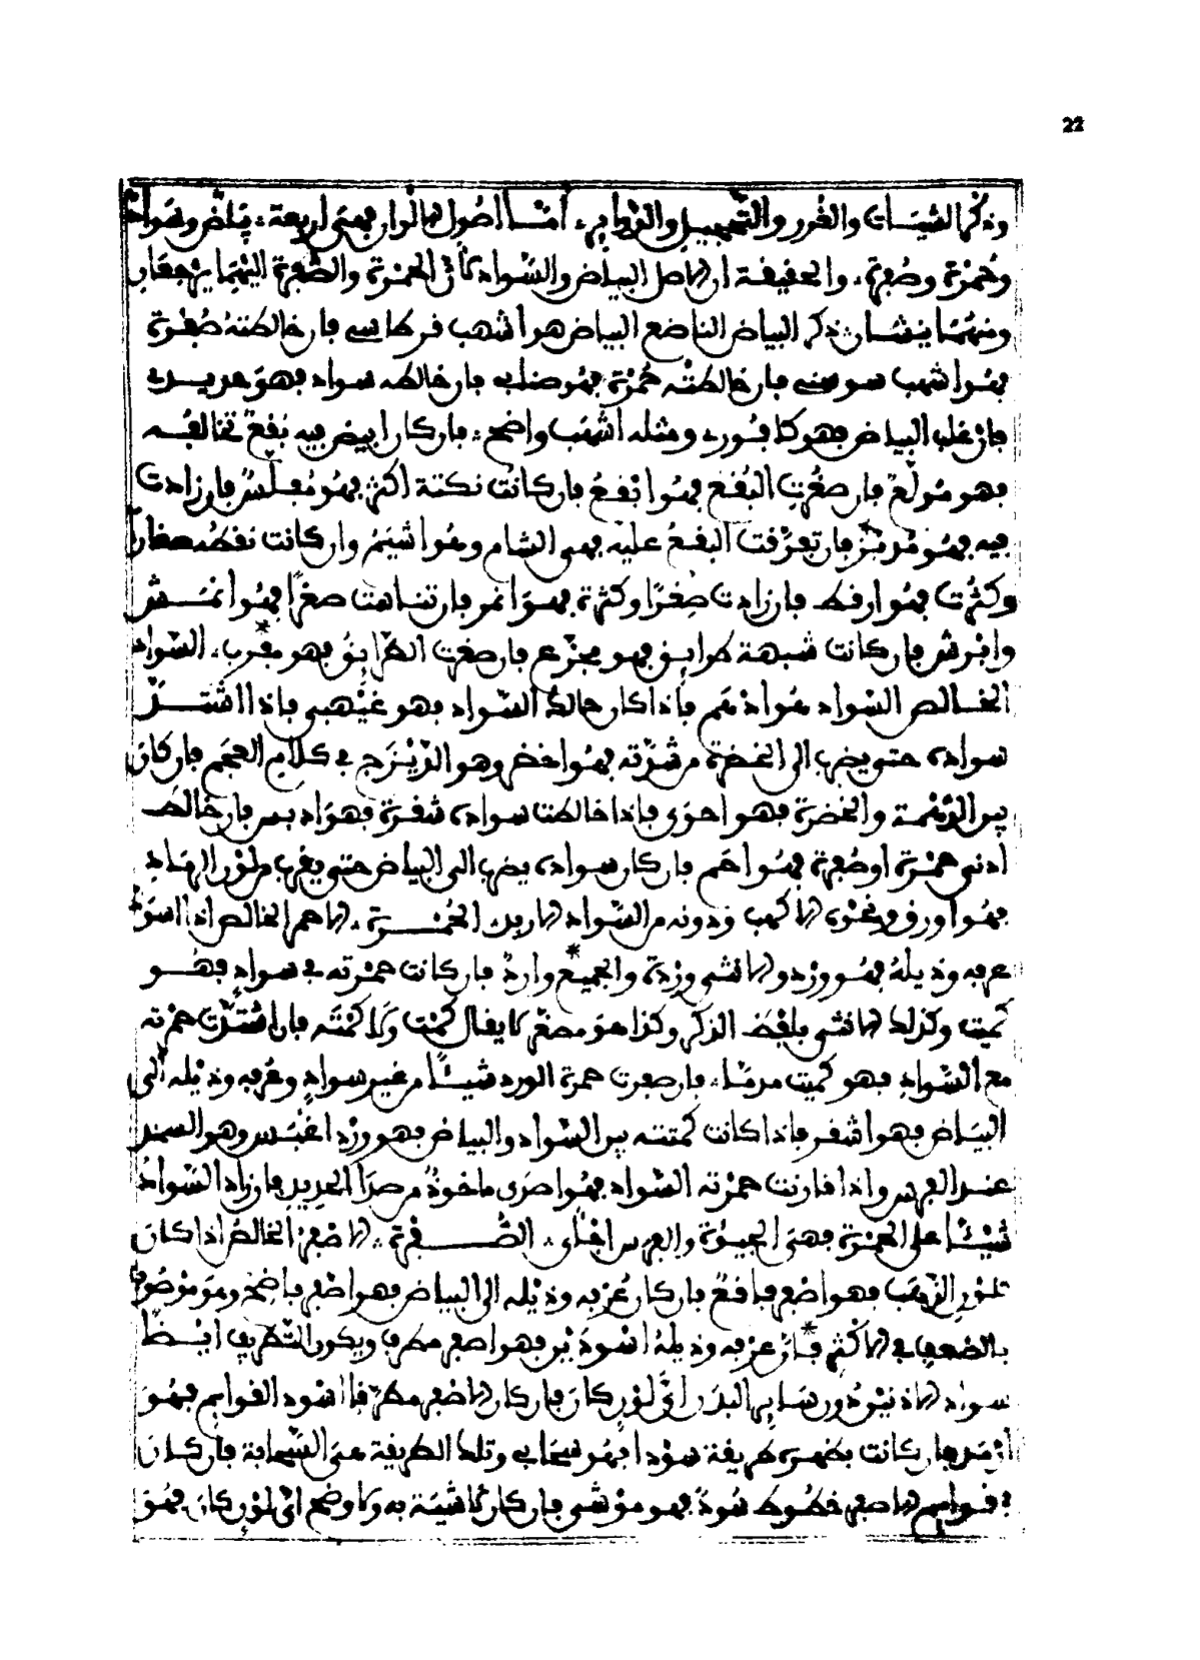 22
وذكر الشيات والغرر والتحجيل والدوائر، أمّا أصول الألوان فهي أربعة، بياض وسواد
وحُمرة وصُفرة، والحقيقة ان الاصل البياض والسواد لأنّ الحمرة والصّفرة اليهما يرجعان
ومنهما ينشان ذكر البياض الناصع البياض هو أشهب قرطاسي فإن خالطته صُفرة
فهو اشهب سوسني فإن خالطته حُمرة فهو صنابي فإن خالطه سواد فهو حديدي
فإن غلب البياض فهو كافوري ومثله أشهب واضح، فإن كان أبيض فيه بُقعٌ تخالفه
فهو مُولّع فإن صغُرت البُقع فهو ابقع فإن كانت نكتة أكثر فهو مُفلّس فإن زادت
فيه فهو مُدنّر فإن تفرّقت البقع عليه فهي الشام وهو أشيم وإن كانت نقطه صغارًا
وكثُرت فهو ارقط فإن زادت صِغرًا وكثرة فهو أنمر فإن تناهت صغرًا فهو أنمش
وابرش فإن كانت شبهة طرايق فهو مجزّع فإن صغرت الطرايق فهو مغرب، السّواد
الخالص السّواد سواد فحم فإذا كان حالك السّواد فهو غيهبي فإذا اشتدّ
سواده حتى يضرب إلى الخضرة من شدّته فهو أخضر وهو الدّيزج في كلام العجم فإن كان
بين الدّهمة والخضرة فهو احوى فإذا خالطت سواده شقرة فهو أدبس فإن خالطـ
ادنى حمرة أو صُفرة فهو أحم فإن كان سواده يضرب إلى البياض حتى يقرب من لون الرماد
فهو أورق ونحوه الاكهب ودونه من السّواد الاربد، الحُمـرة، الاحمر الخالص إذا اسودّ
عرفه وذيله فهو ورد والانثى وردة والجميع وِراد فإن كانت حمرته في سواد فهو
كميت وكذلك الانثى بلفظ الذكر وكذا هو مصغّر لا يقال كمت ولا كمته فإن اشتدّت حمرته
مع السّواد فهو كميت مدمّا، فإن صفرت حمرة الورد شيئًا من غير سواد وعُرفه وذيله إلى
البياض فهو أشقر فإذا كانت كمتته بين السّواد والبياض فهو ورد اغبس وهو السمند
عند الفرس وإذا قارنت حمرته السّواد فهو أصدى ماخوذ من صدأ الحديد فإن زاد السّواد
شيئًا على الحمرة فهي الجؤوة والفرس اجأى، الصُّفرة، الاصفر الخالص إذا كان
كلون الذّهب فهو أصفر فاقع فإن كان عُرفه وذيله إلى البياض فهو أصفر فاضح وهو موصُوف
بالضعف في الأكثر فإن عرفه وذيلهُ أسودَين فهو أصفر مطرف ويكون التطريف أيضًا
سواد الاذنين دون ساير البدن أيّ لون كان فإن كان الاصفر مطرّفا اسود القوايم فهو
فإن كانت بظهره طريقة سودا فهو سحابي وتلك الطريقة هي السّحابة فإن كان
في قوايم الاصفر خطوط سُود فهو موشى فإن كان لا شية به ولا وضح ايّ لون كان فهو